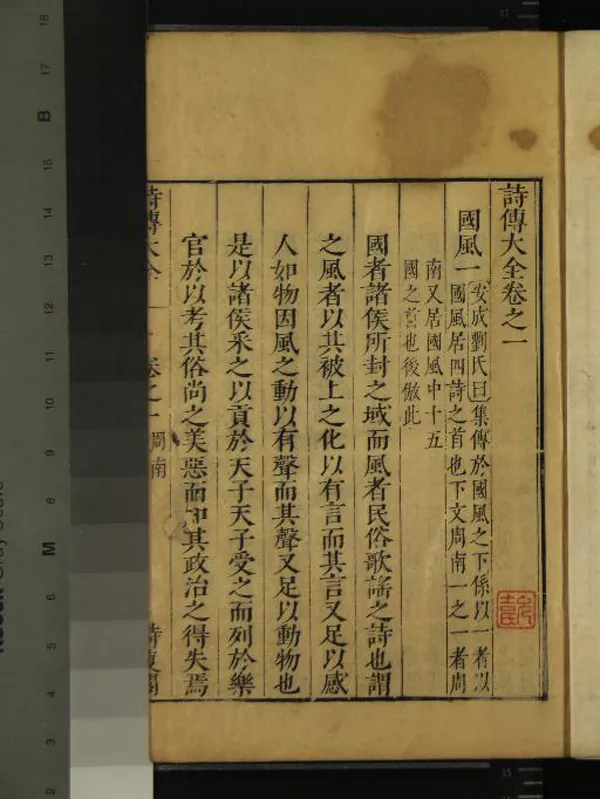 詩傳大全卷之一
國風一
安成劉氏曰集傳於國風之下係以一者以
國風居四詩之首也下文周南一之一者周
南又居國風中十五
國之首也後倣此
國者諸侯所封之域而風者民俗歌謠之詩也謂
之風者以其被上之化以有言而其言又足以感
人如物因風之動以有聲而其聲又足以動物也
是以諸侯采之以貢於天子天子受之而列於樂
官於以考其俗尚之美惡而知其政治之得失焉
詩傳大全 卷之一 周南
18
17
B
16
15
14
13
12
11
10
9
8
M
7
6
5
4
3
2